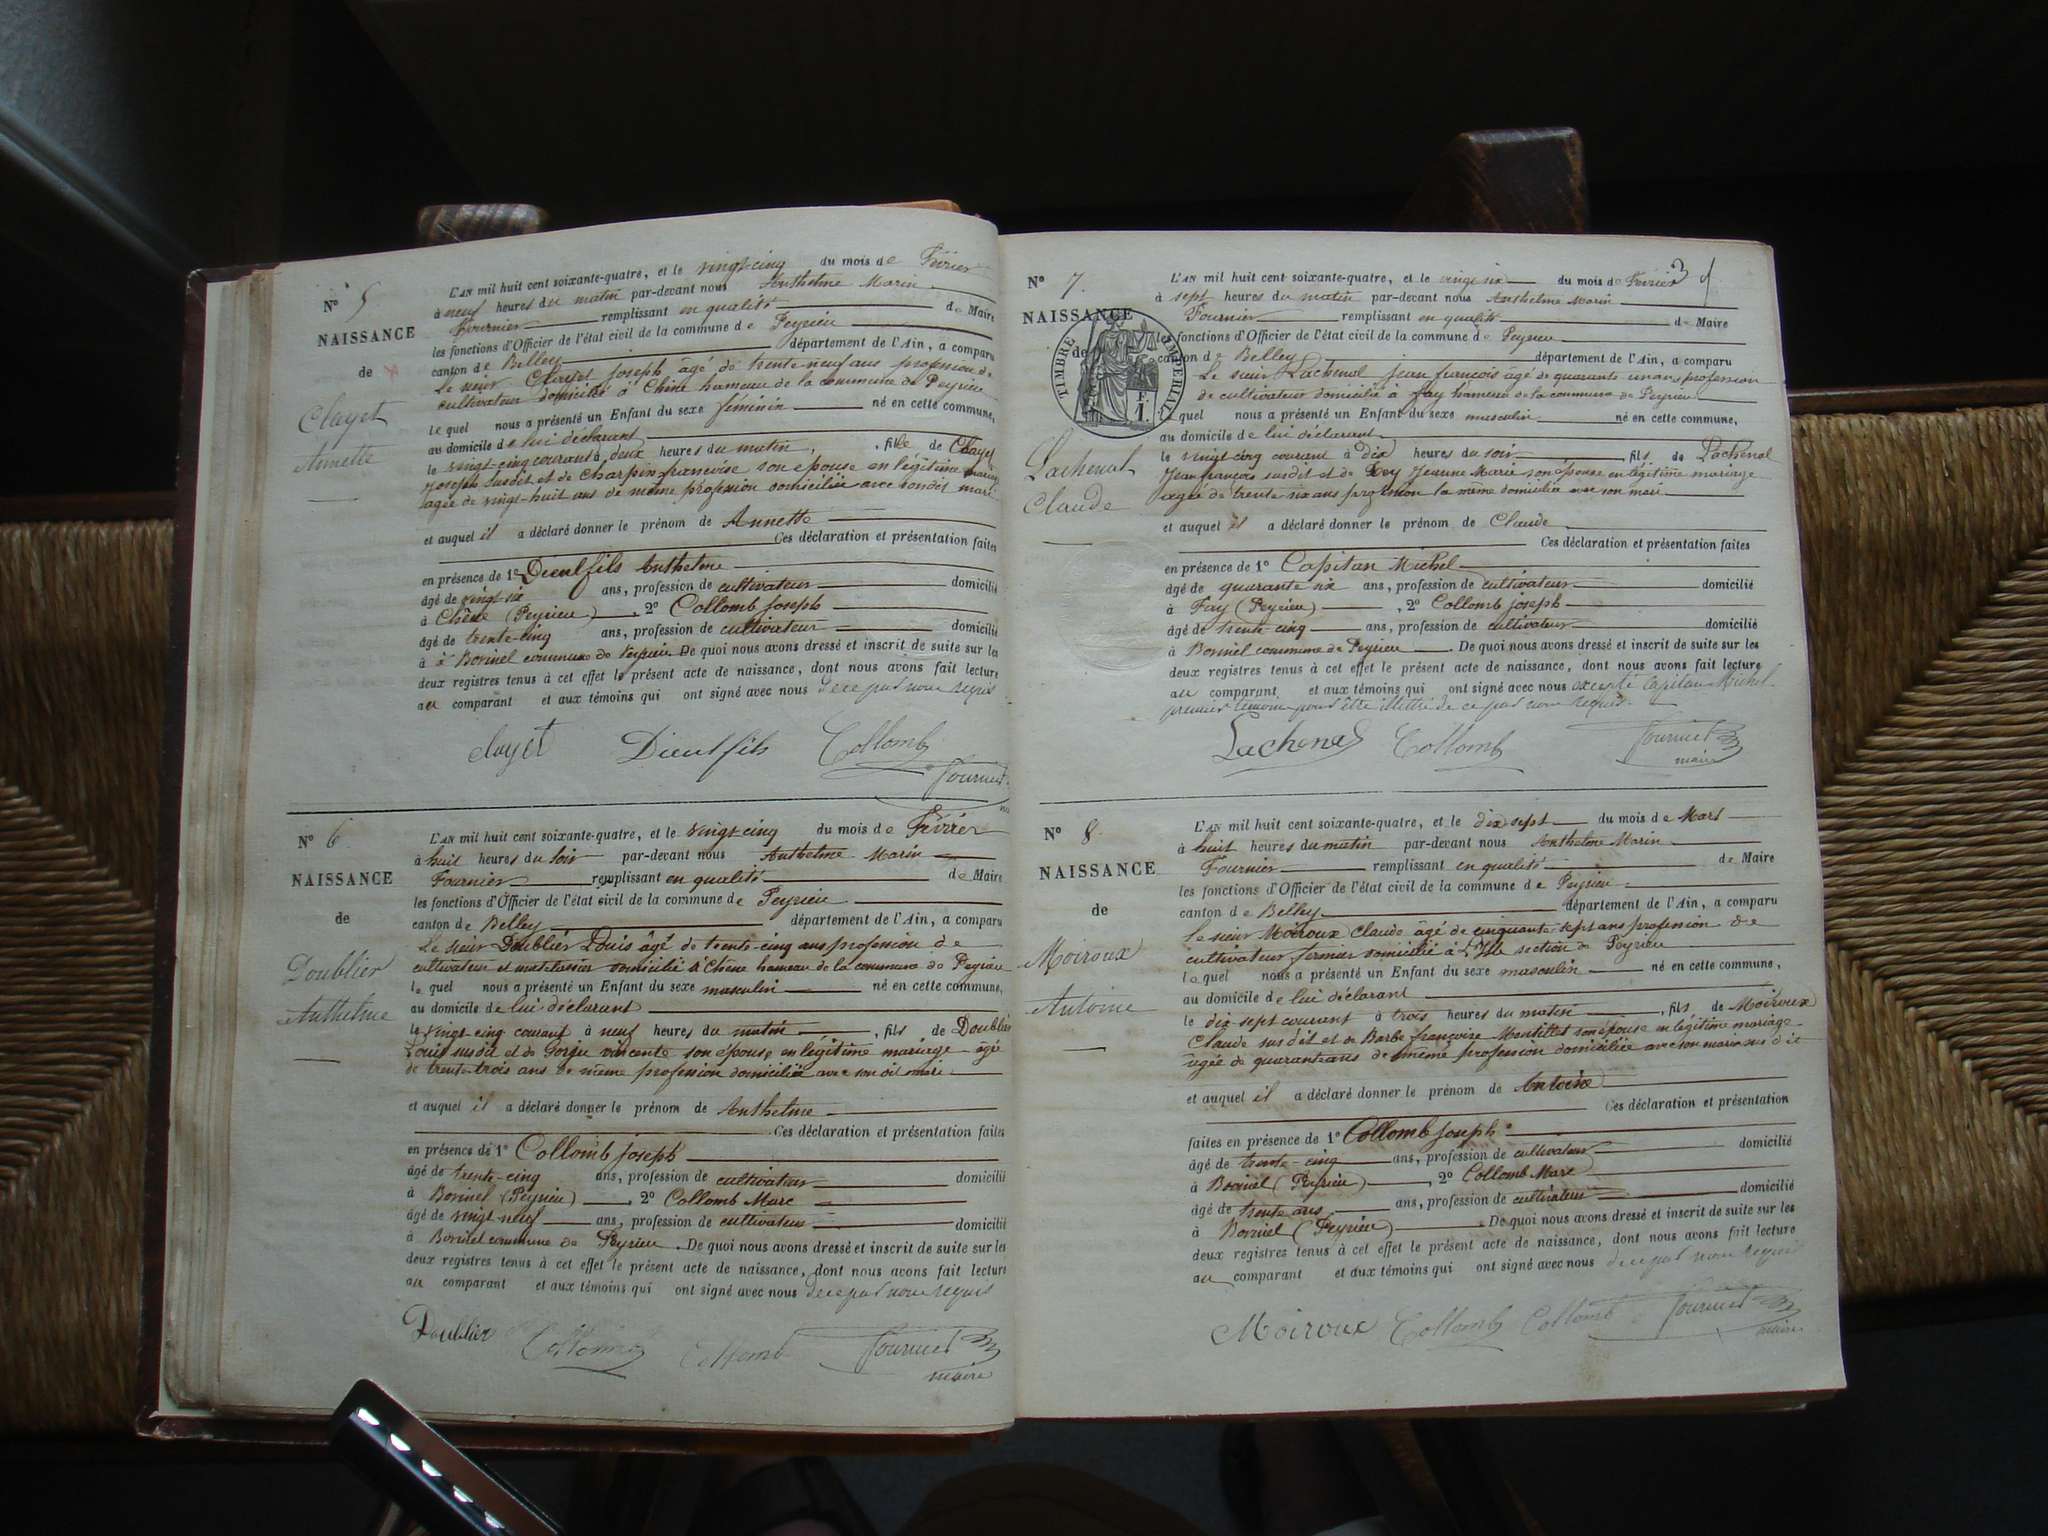 N° 5
NAISSANCE
de
Clayet
Annette
L'AN mil huit cent soixante-quatre, et le vingt-cinq du mois de Février
à neuf heures du matin par-devant nous Anthelme Marin
Fournier remplissant en qualité de Maire
les fonctions d'Officier de l'état civil de la commune de Peyrieu
canton de Belley département de l'Ain, a comparu
Le sieur Clayet Joseph âgé de trente-neuf ans profession de
cultivateur domicilié à Chêne hameau de la commune de Peyrieu
le quel nous a présenté un Enfant du sexe féminin né en cette commune,
au domicile de lui déclarant
le vingt-cinq courant à deux heures du matin, fille de Clayet
Joseph susdit et de Charpin françoise son épouse en légitime mariage
agée de vingt-huit ans de même profession domiciliée avec son dit mari
et auquel il a déclaré donner le prénom de Annette
Ces déclaration et présentation faites
en présence de 1° Dieulfils Anthelme
âgé de vingt six ans, profession de cultivateur domicilié
à Chêne (Peyrieu), 2° Collomb Joseph
âgé de trente-cinq ans, profession de cultivateur domicilié
à à Borinel commune de Peyrieu De quoi nous avons dressé et inscrit de suite sur les
deux registres tenus à cet effet le présent acte de naissance, dont nous avons fait lecture
au comparant et aux témoins qui ont signé avec nous de ce par nous requis
Clayet Dieulfils Collomb
Fournier
N° 6
NAISSANCE
de
Doublier
Anthelme
L'AN mil huit cent soixante-quatre, et le vingt-cinq du mois de Février
à huit heures du soir par-devant nous Anthelme Marin
Fournier remplissant en qualité de Maire
les fonctions d'Officier de l'état civil de la commune de Peyrieu
canton de Belley département de l'Ain, a comparu
Le sieur Doublier Louis âgé de trente-cinq ans profession de
cultivateur et matelassier domicilié à Chêne hameau de la commune de Peyrieu
le quel nous a présenté un Enfant du sexe masculin né en cette commune,
au domicile de lui déclarant
le vingt-cinq courant à neuf heures du matin, fils de Doublier
Louis susdit et de son épouse en légitime mariage âgé
de trente-trois ans de même profession domiciliée avec son dit mari
et auquel il a déclaré donner le prénom de Anthelme
Ces déclaration et présentation faites
en présence de 1° Collomb Joseph
âgé de trente-cinq ans, profession de cultivateur domicilié
à Borinel (Peyrieu), 2° Collomb Marc
âgé de vingt-neuf ans, profession de cultivateur domicilié
à Borinel commune de Peyrieu. De quoi nous avons dressé et inscrit de suite sur les
deux registres tenus à cet effet le présent acte de naissance, dont nous avons fait lecture
au comparant et aux témoins qui ont signé avec nous de ce par nous requis
Doublier Collomb Collomb Fournier
maire
3
N° 7.
NAISSANCE
de
TIMBRE IMPERIAL
F.
1.
Lachenal
Claude
L'AN mil huit cent soixante-quatre, et le vingt six du mois de Février
à sept heures du matin par-devant nous Anthelme Marin
Fournier remplissant en qualité de Maire
les fonctions d'Officier de l'état civil de la commune de Peyrieu
canton de Belley département de l'Ain, a comparu
Le sieur Lachenal Jean françois âgé de quarante un ans profession
de cultivateur domicilié à Fay hameau de la commune de Peyrieu
le quel nous a présenté un Enfant du sexe masculin né en cette commune,
au domicile de lui déclarant
le vingt cinq courant à dix heures du soir fils de Lachenal
Jean françois susdit et de Jeanne Marie son épouse en légitime mariage
agée de trente-six ans profession la même domiciliée avec son mari
et auquel il a déclaré donner le prénom de Claude
Ces déclaration et présentation faites
en présence de 1° Capitan Michel
âgé de quarante six ans, profession de cultivateur domicilié
à Fay (Peyrieu), 2° Collomb Joseph
âgé de trente-cinq ans, profession de cultivateur domicilié
à Borinel commune de Peyrieu. De quoi nous avons dressé et inscrit de suite sur les
deux registres tenus à cet effet le présent acte de naissance, dont nous avons fait lecture
au comparant et aux témoins qui ont signé avec nous excepté Capitan Michel
premier témoin pour être illettré de ce par nous requis.
Lachenal Collomb Fournier
maire
N° 8.
NAISSANCE
de
Moiroux
Antoine
L'AN mil huit cent soixante-quatre, et le dix sept du mois de Mars
à huit heures du matin par-devant nous Anthelme Marin
Fournier remplissant en qualité de Maire
les fonctions d'Officier de l'état civil de la commune de Peyrieu
canton de Belley département de l'Ain, a comparu
Le sieur Moiroux Claude âgé de cinquante-sept ans profession de
cultivateur fermier domicilié à l'Isle section de Peyrieu
le quel nous a présenté un Enfant du sexe masculin né en cette commune,
au domicile de lui déclarant
le dix-sept courant à trois heures du matin, fils de Moiroux
Claude susdit et de Barbe françoise Montillet son épouse en légitime mariage
agée de quarante ans de même profession domiciliée avec son mari susdit
et auquel il a déclaré donner le prénom de Antoine
Ces déclaration et présentation
faites en présence de 1° Collomb Joseph
âgé de trente-cinq ans, profession de cultivateur domicilié
à Borinel (Peyrieu), 2° Collomb Marc
âgé de trente ans ans, profession de cultivateur domicilié
à Borinel (Peyrieu) De quoi nous avons dressé et inscrit de suite sur les
deux registres tenus à cet effet le présent acte de naissance, dont nous avons fait lecture
au comparant et aux témoins qui ont signé avec nous de ce par nous requis
Moiroux Collomb Collomb Fournier
maire